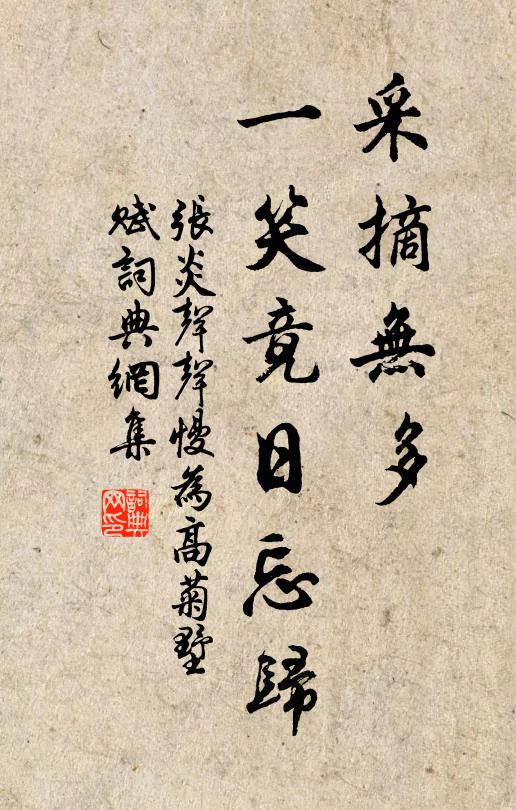 采摘無多
一笑竟日忘歸
張炎聲聲慢為高菊墅
賦詞典網集
詞典網印